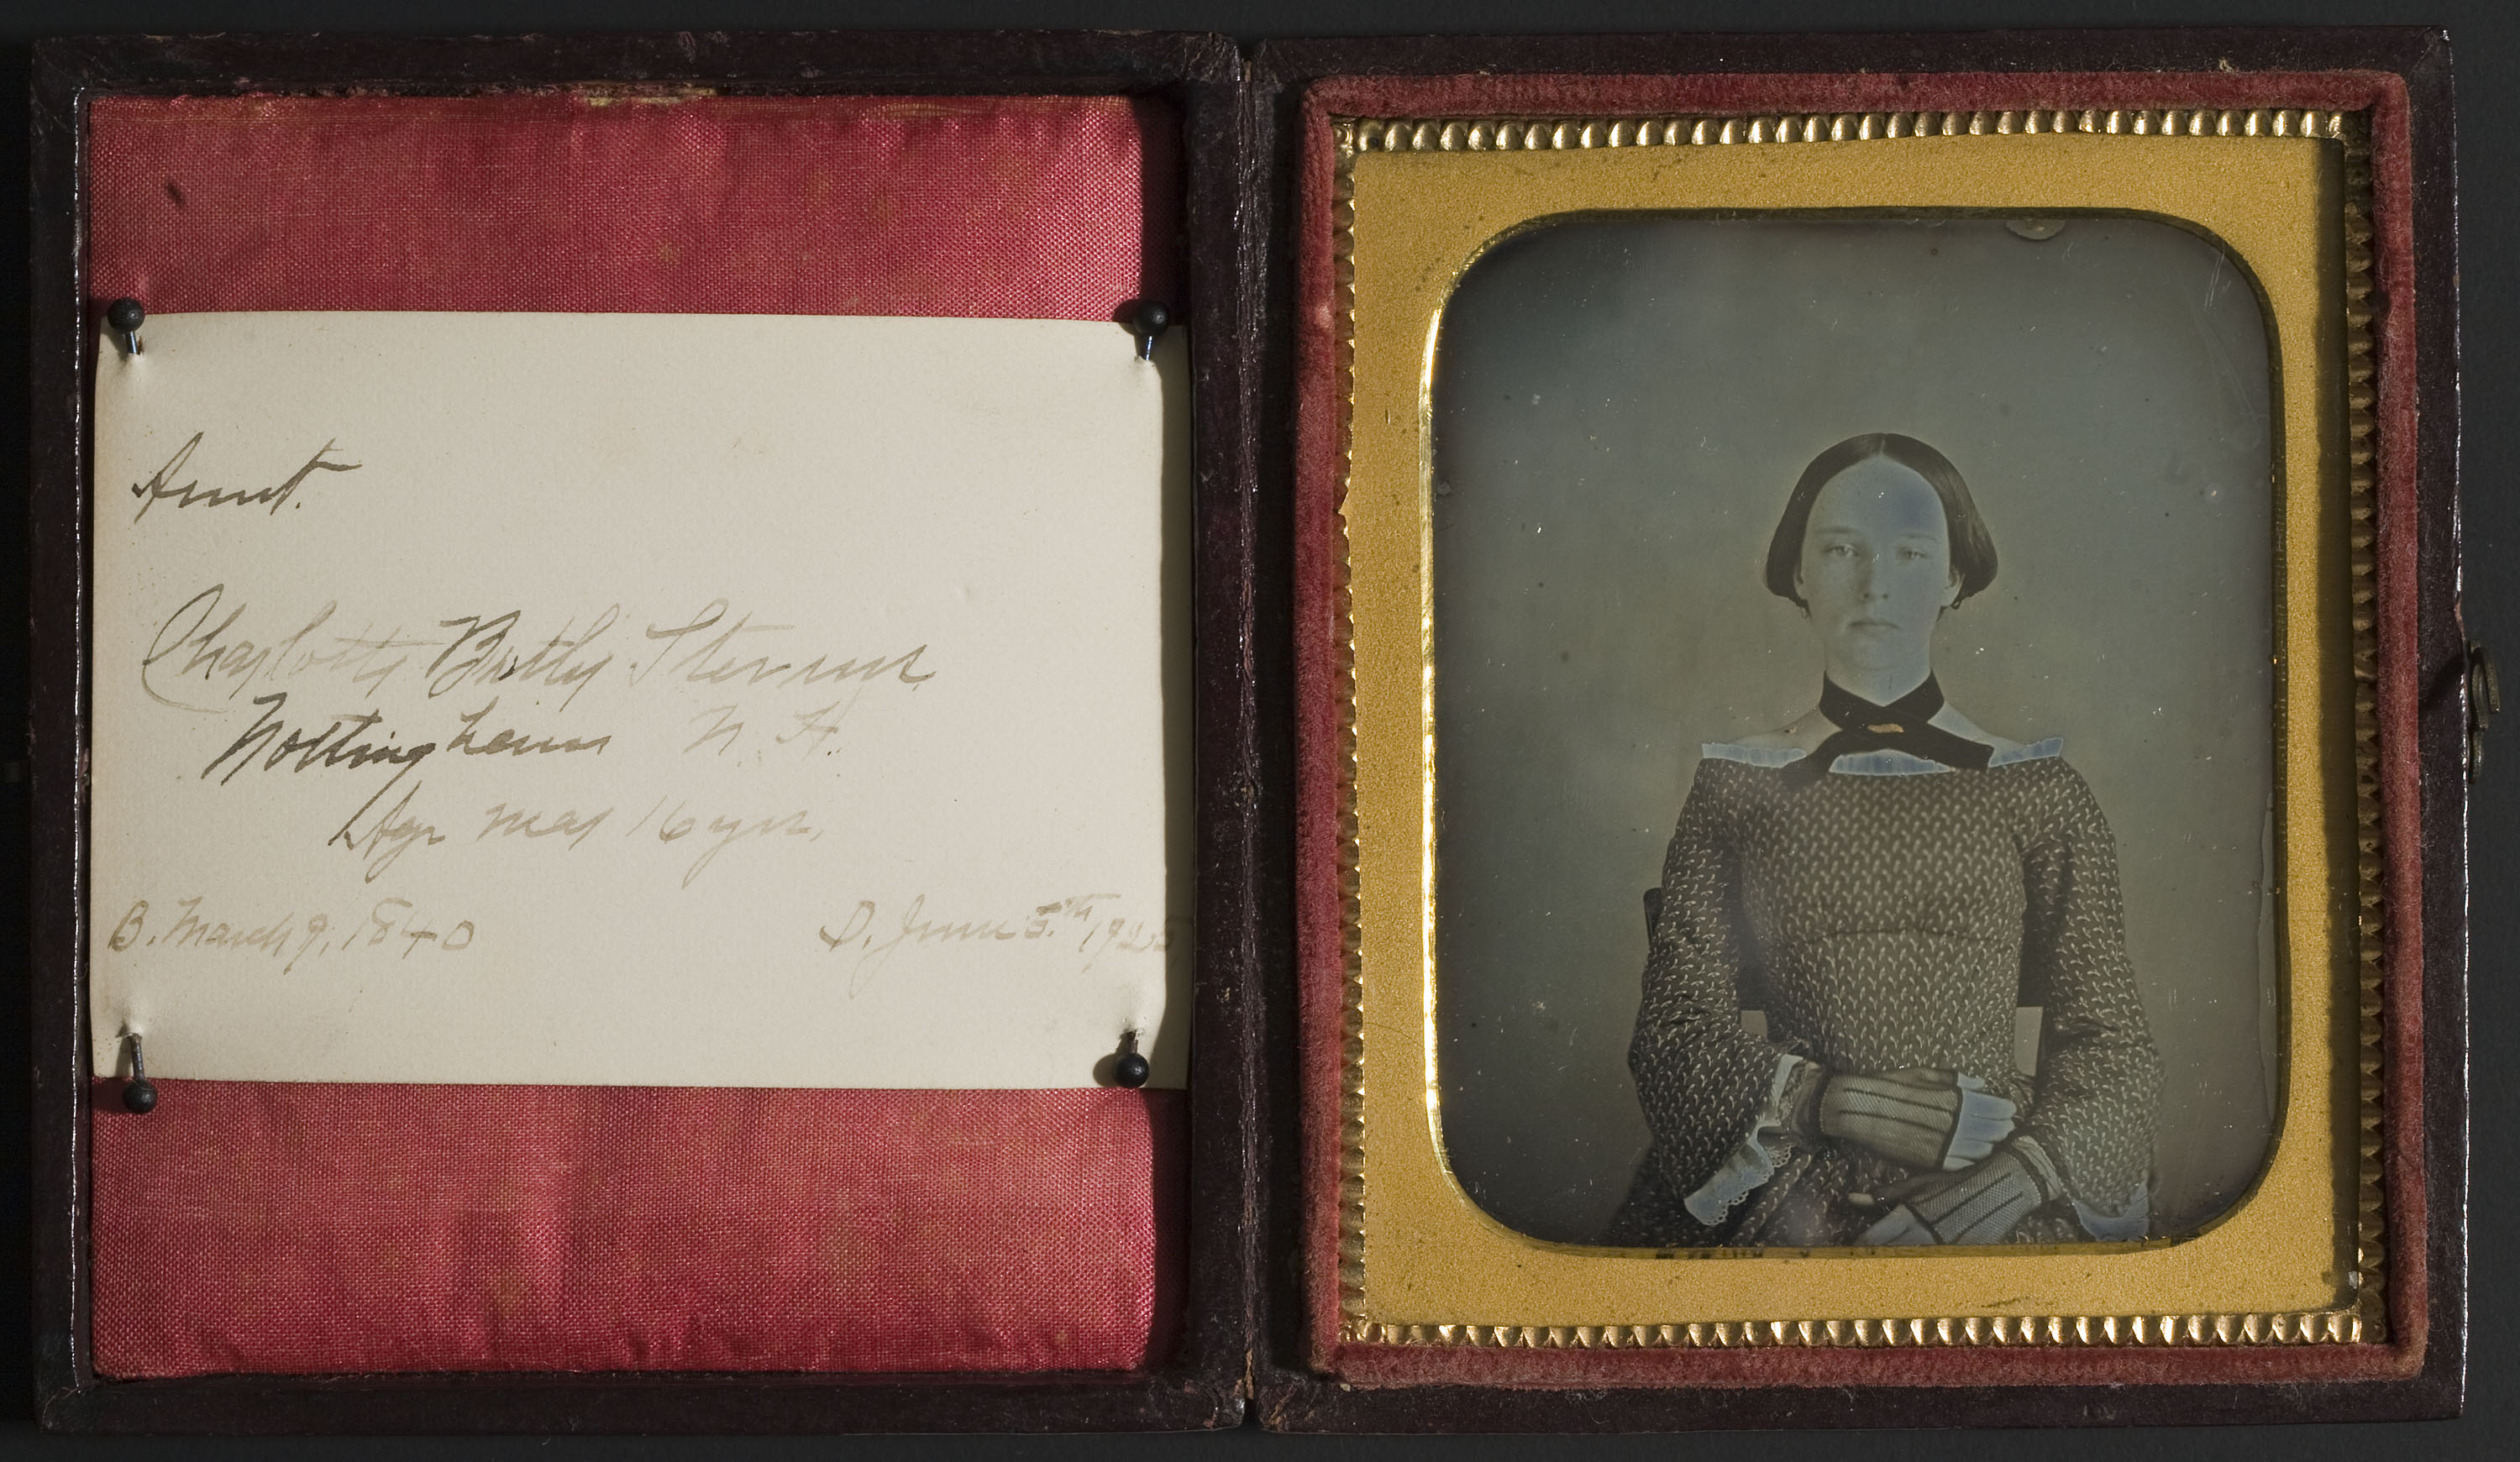 Aunt.
Charlotte Butler Stevens
Nottingham N. H.
Age 16 yrs.
B. March 9, 1840 D. June 5th